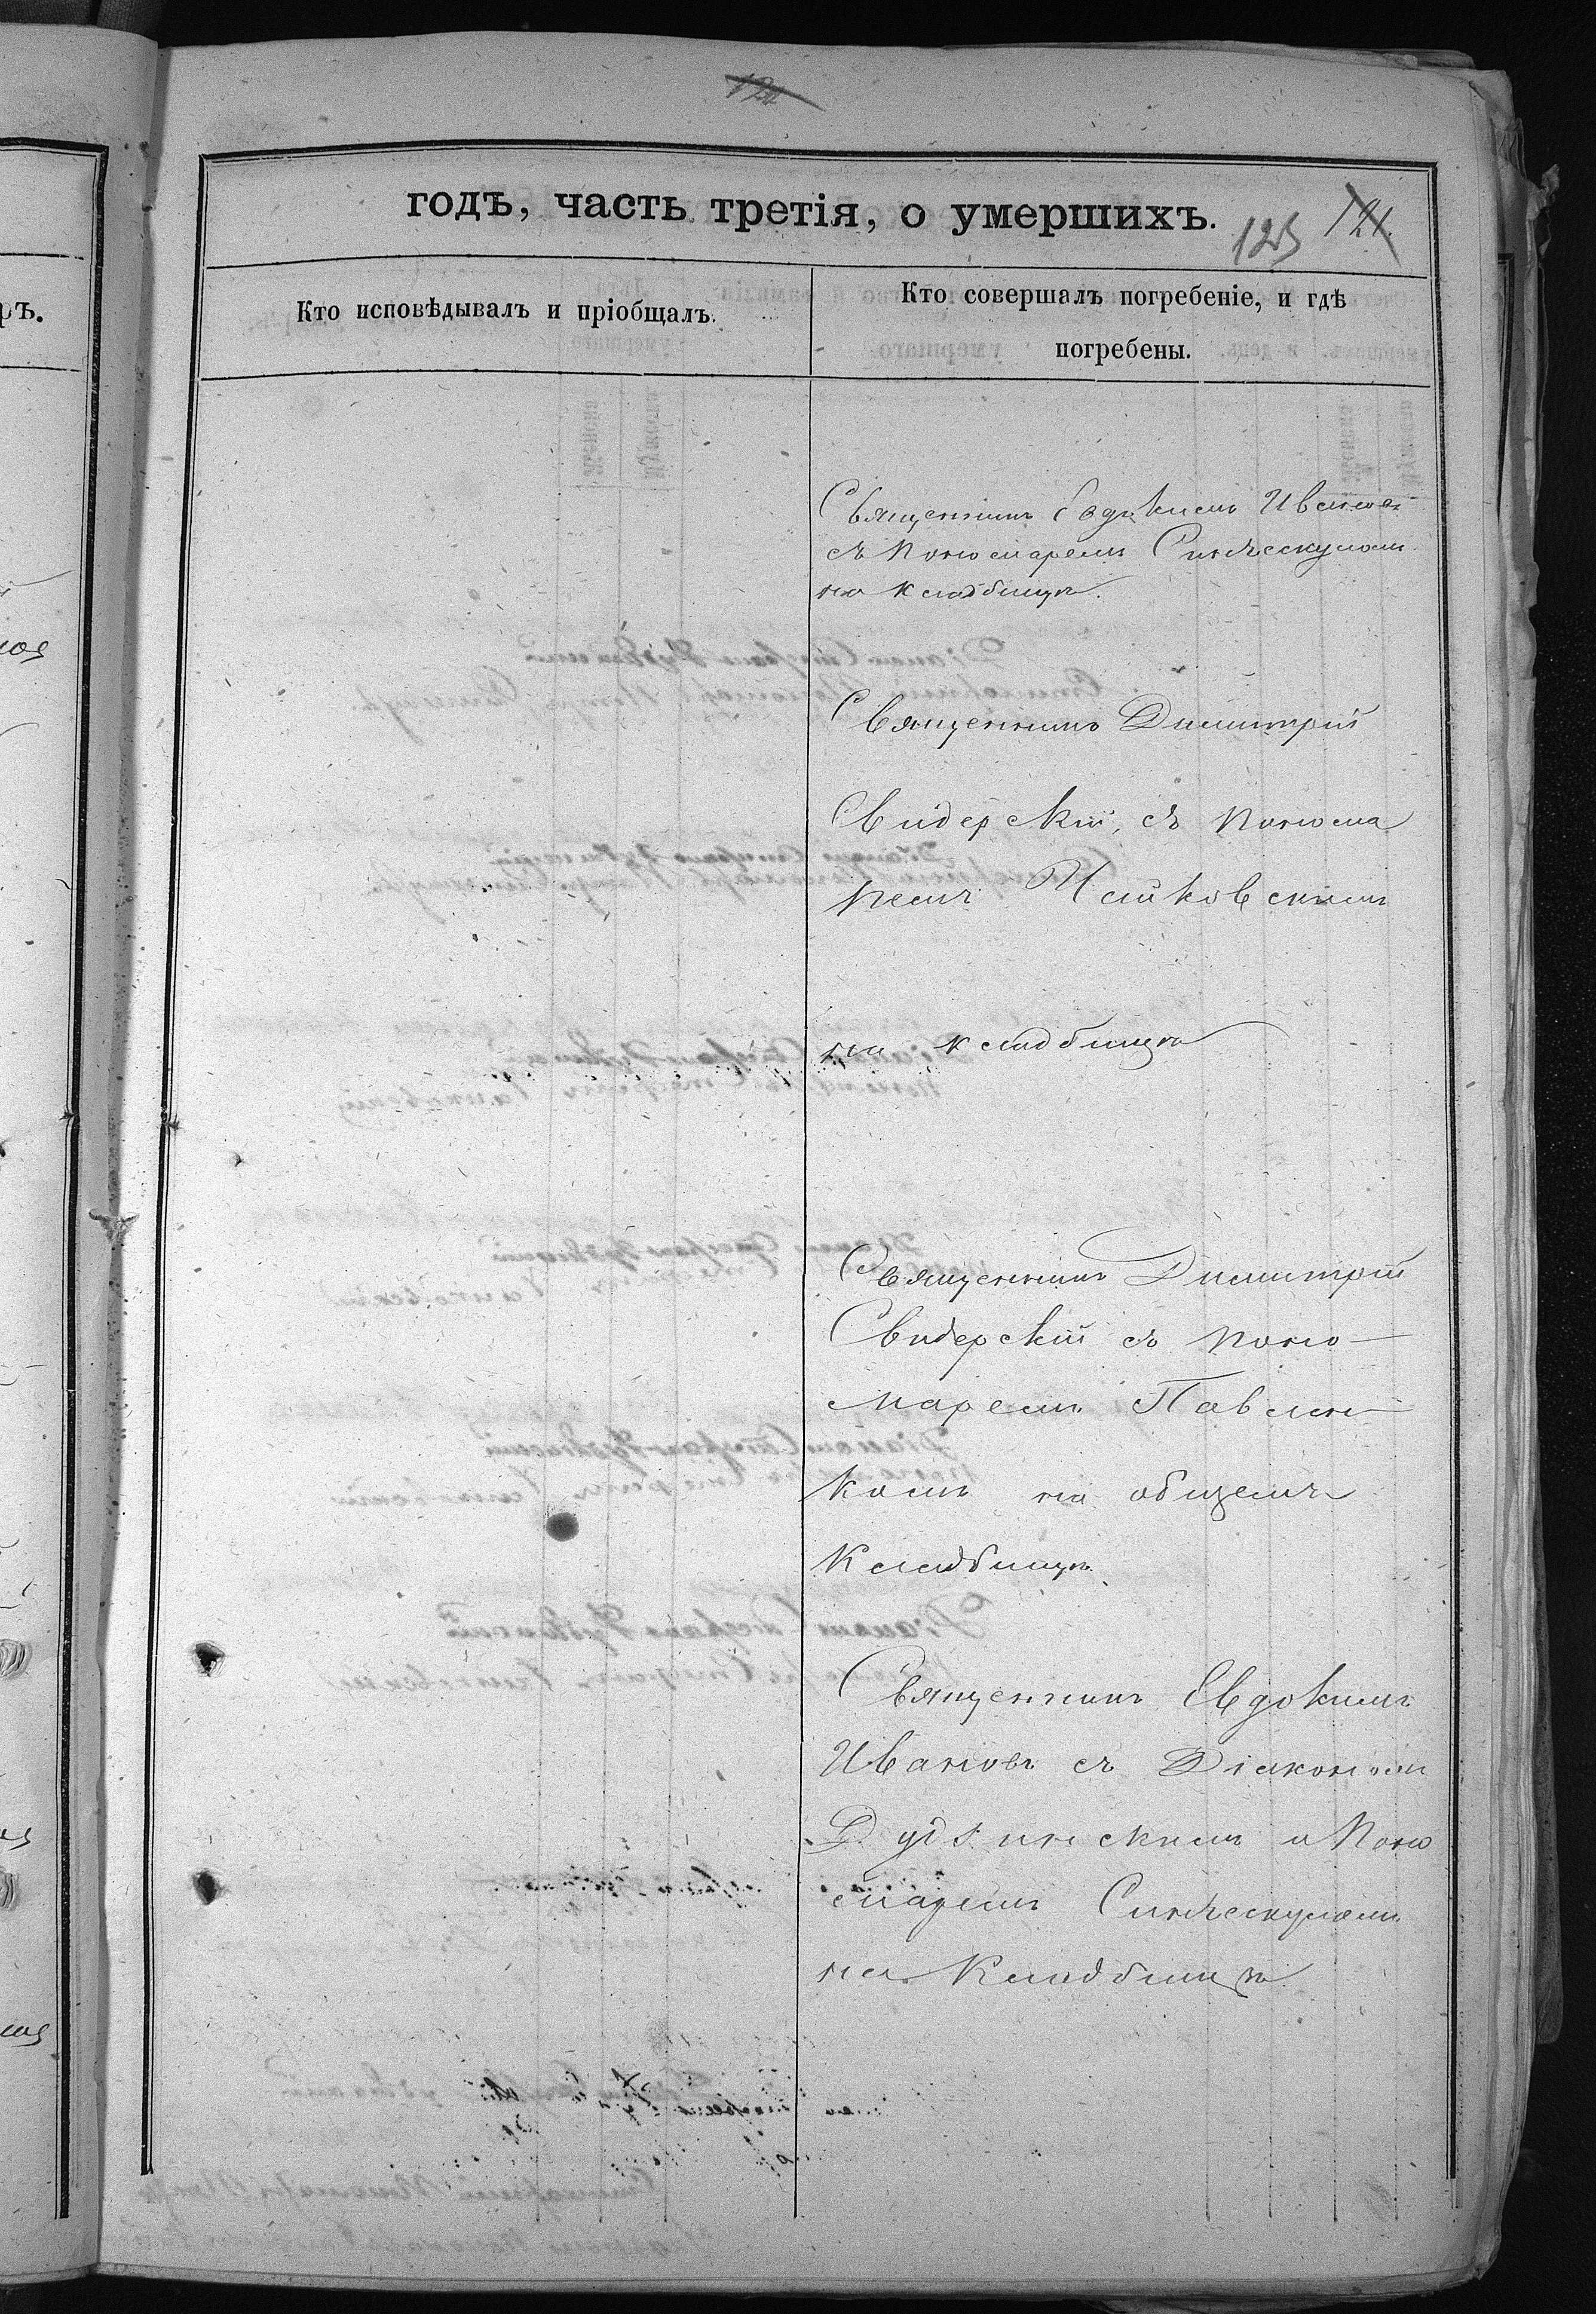 годъ, часть третія, о умершихъ.
125
121.
Кто исповѣдывалъ и пріобщалъ.
Кто совершалъ погребеніе, и гдѣ
погребены.
Священникъ Евдокимъ Ивановъ
съ пономаремъ
на кладбищѣ.
Священникъ Димитрій
Свидерскій, съ понома
ремъ
на кладбищѣ
Священникъ Димитрій
Свидерскій съ поно-
маремъ Павлен-
комъ на общемъ
кладбищѣ.
Священникъ Евдокимъ
Ивановъ съ Діакономъ
и поно
маремъ
на кладбищѣ